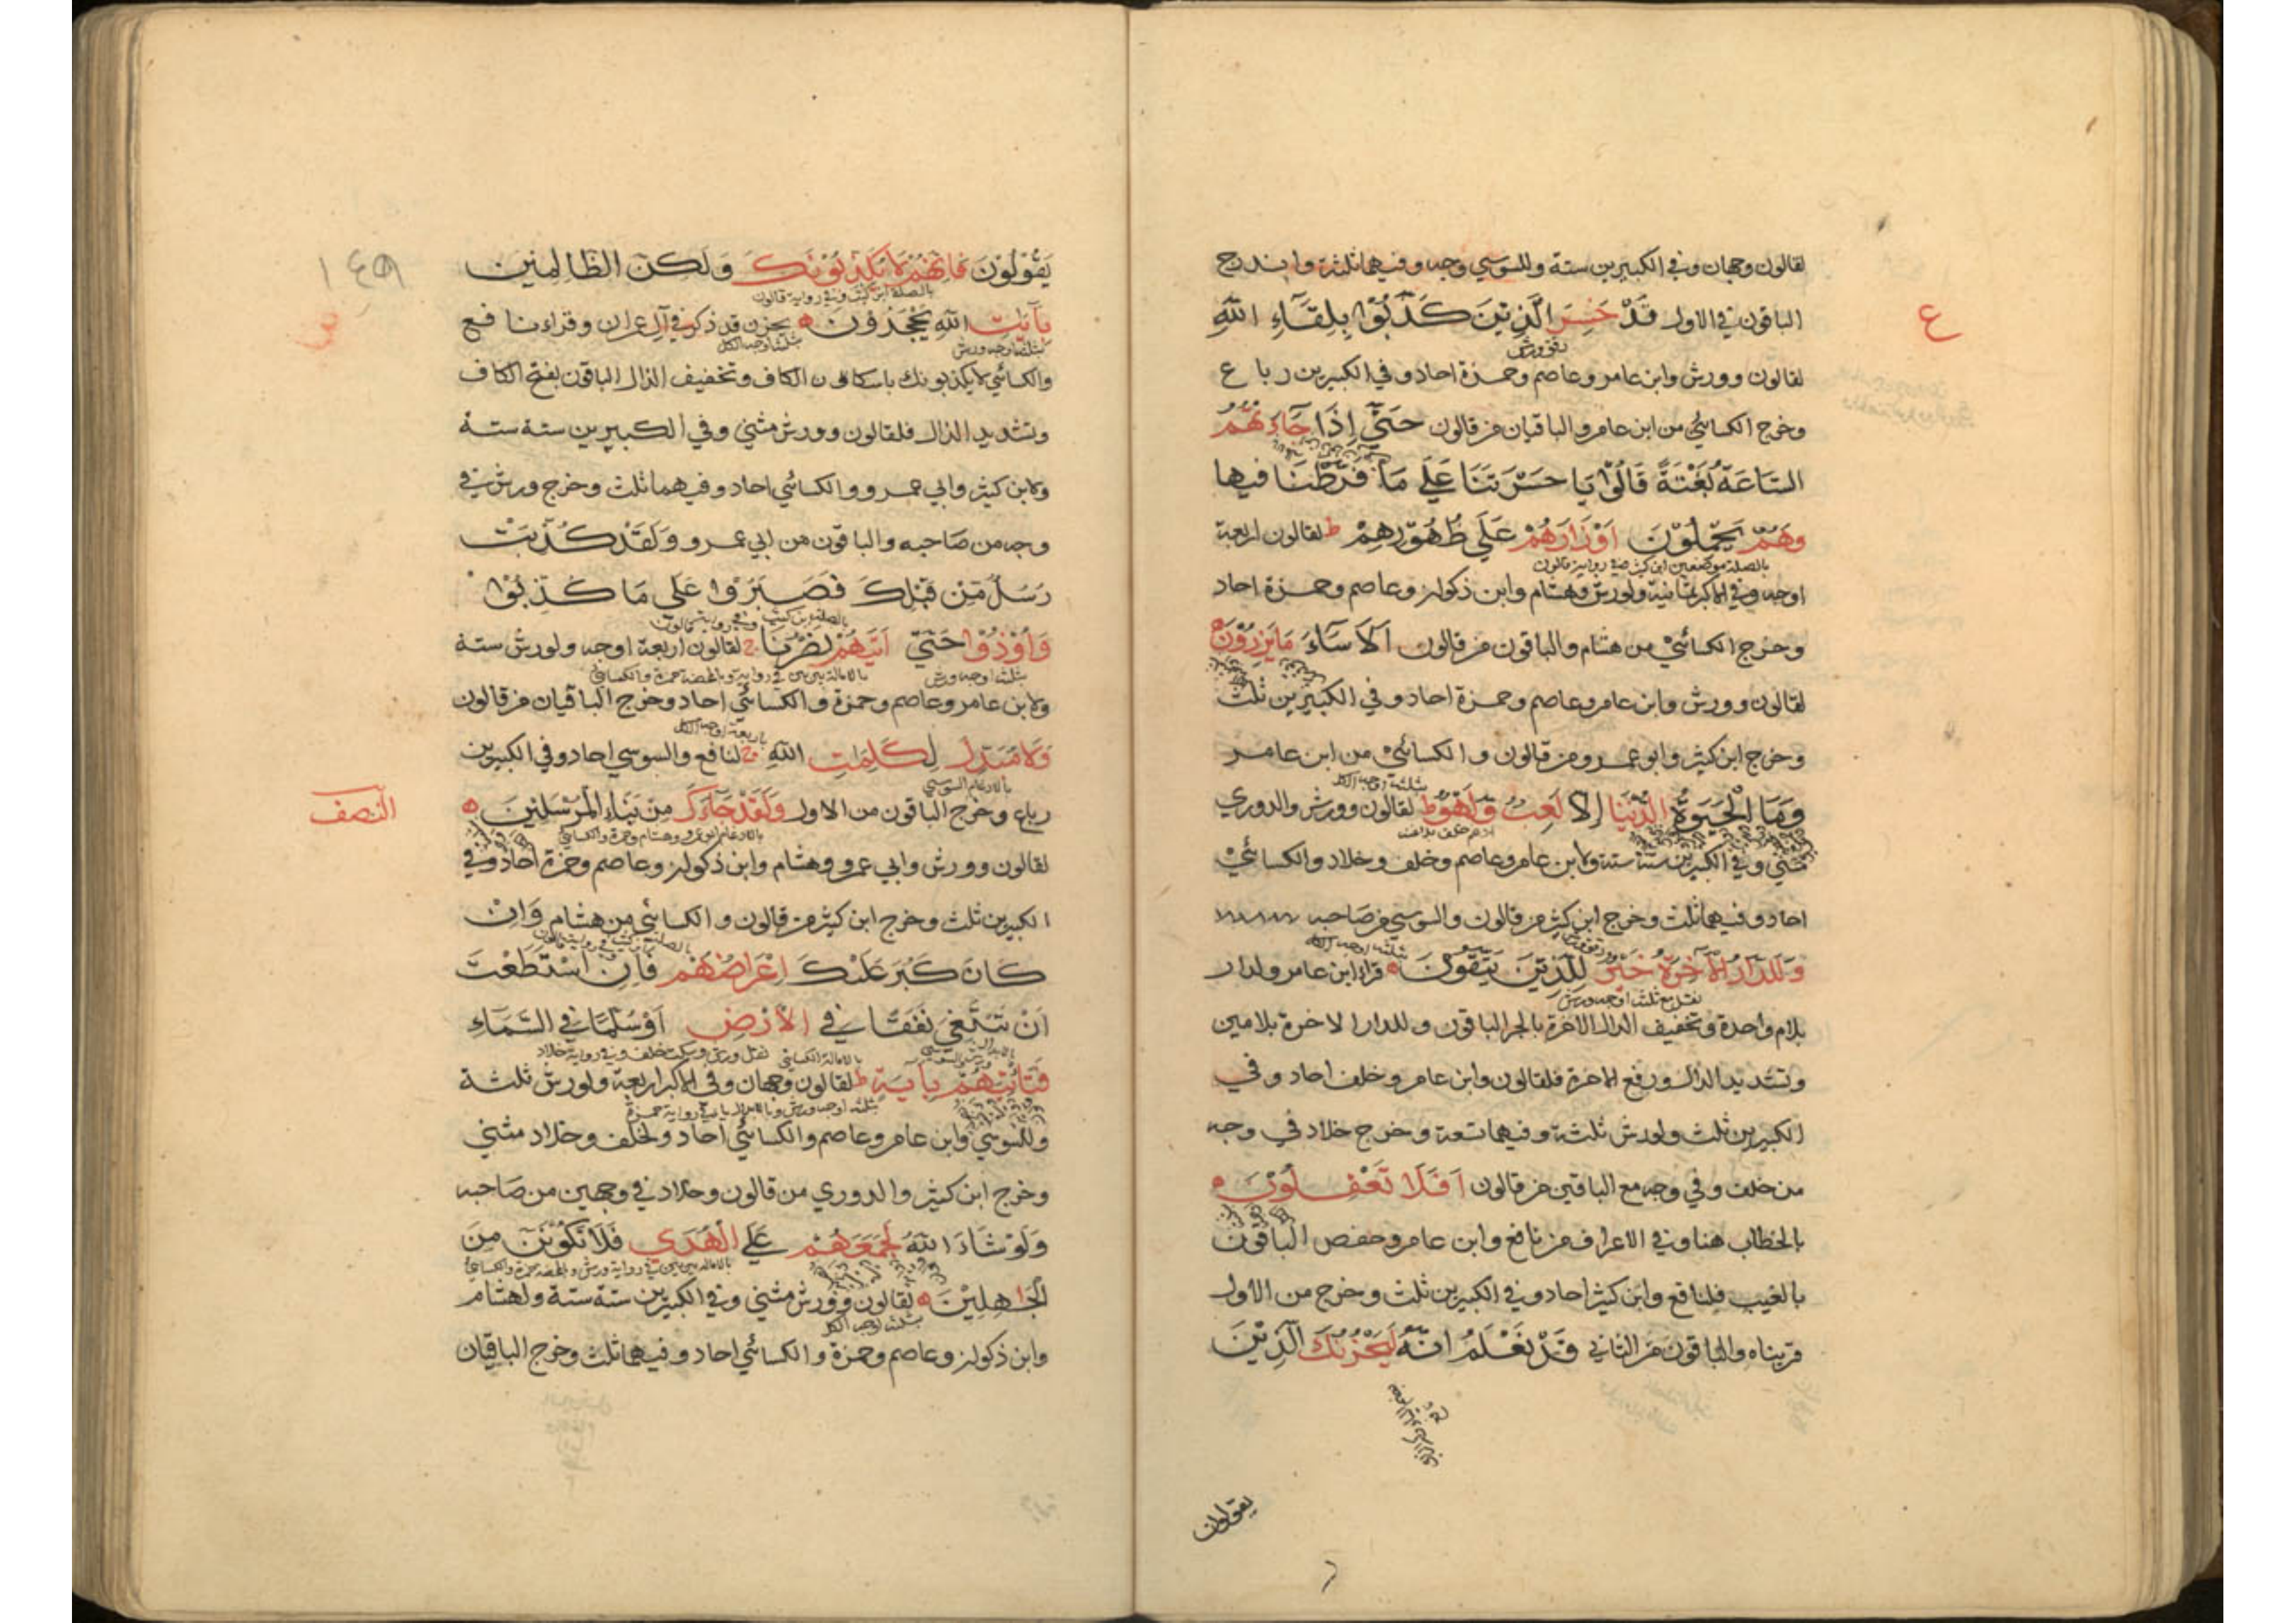 لقالون وجهان وفي الكبيرين ستة وللسوسي وجه وفيهما ثلثة واندرج
الباقون في الاول قَدْ خَسِرَ الَّذِينَ كَذَّبُوا بِلِقَاءِ اللهِ
لقالون وورش وابن عامر وعاصم وحمزة احاد وفي الكبيرين رباع
وخرج الكسائي من ابن عامر والباقيان من قالون حَتَّى إِذَا جَاءَتْهُمُ
السَّاعَةُ بَغْتَةً قَالُوا يَا حَسْرَتَنَا عَلَى مَا فَرَّطْنَا فِيهَا
وَهُمْ يَحْمِلُونَ اَوْزَارَهُمْ عَلَى ظُهُورِهِمْ ط لقالون اربعة
اوجه وفي الاكبر ثمانية ولورش وهشام وابن ذكوان وعاصم وحمزة احاد
وخرج الكسائي من هشام والباقون من قالون اَلَا سَاءَ مَا يَزِرُونَ
لقالون وورش وابن عامر وعاصم وحمزة احاد وفي الكبيرين ثلث
وخرج ابن كثير وابو عمرو من قالون والكسائي من ابن عامر
وَمَا الْحَيٰوةُ الدُّنْيَا اِلَّا لَعِبٌ وَلَهْوٌ ط لقالون وورش والدوري
مثنى وفي الكبيرين ستة ستة ولابن عامر وعاصم وخلف وخلاد والكسائي
احاد وفيهما ثلث وخرج ابن كثير من قالون والسوسي من صاحبه
وَلَلدَّارُ الْاٰخِرَةُ خَيْرٌ لِلَّذِينَ يَتَّقُونَ قرا ابن عامر ولدار
بلام واحدة وتخفيف الدال الاخرة بالجر الباقون وللدار الاخرة بلامين
وتشديد الدال ورفع الاخرة فلقالون وابن عامر وخلف احاد وفي
الكبيرين ثلث ولورش ثلثة وفيهما تسعة وخرج خلاد في وجه
من خلف وفي وجه مع الباقين من قالون اَفَلَا تَعْقِلُونَ
بالخطاب هنا وفي الاعراف من نافع وابن عامر وحفص الباقون
بالغيب فلنافع وابن كثير احاد وفي الكبيرين ثلث وخرج من الاول
قريناه والباقون من الثاني قَدْ نَعْلَمُ اِنَّهُ لَيَحْزُنُكَ الَّذِينَ
يقولون
ع
١٤٩
يَقُولُونَ فَاِنَّهُمْ لَا يُكَذِّبُونَكَ وَلٰكِنَّ الظَّالِمِينَ
بِاٰيَاتِ اللهِ يَجْحَدُونَ يحزن قد ذكر في آل عمران وقراءنا فع
والكسائي لا يكذبونك باسكان الكاف وتخفيف الذال الباقون بفتح الكاف
وتشديد الذال فلقالون وورش مثنى وفي الكبيرين ستة ستة
ولابن كثير وابي عمرو والكسائي احاد وفيهما ثلث وخرج ورش في
وجه من صاحبه والباقون من ابي عمرو وَلَقَدْ كُذِّبَتْ
رُسُلٌ مِنْ قَبْلِكَ فَصَبَرُوا عَلَى مَا كُذِّبُوا
وَاُوذُوا حَتَّى اَتٰيهُمْ نَصْرُنَا ج لقالون اربعة اوجه ولورش ستة
ولابن عامر وعاصم وحمزة والكسائي احاد وخرج الباقيان من قالون
وَلَا مُبَدِّلَ لِكَلِمَاتِ اللهِ ج لنافع والسوسي احاد وفي الكبيرين
رباع وخرج الباقون من الاول وَلَقَدْ جَاءَكَ مِنْ نَبَاءِ الْمُرْسَلِينَ
النصف
لقالون وورش وابي عمرو وهشام وابن ذكوان وعاصم وحمزة احاد وفي
الكبيرين ثلث وخرج ابن كثير من قالون والكسائي من هشام وَاِنْ
كَانَ كَبُرَ عَلَيْكَ اِعْرَاضُهُمْ فَاِنِ اسْتَطَعْتَ
اَنْ تَبْتَغِيَ نَفَقًا فِي الْاَرْضِ اَوْ سُلَّمًا فِي السَّمَاءِ
فَتَأْتِيَهُمْ بِاٰيَةٍ ط لقالون وجهان وفي الاكبر اربعة ولورش ثلثة
وللسوسي وابن عامر وعاصم والكسائي احاد ولخلف وخلاد مثنى
وخرج ابن كثير والدوري من قالون وخلاد في وجهين من صاحبه
وَلَوْ شَاءَ اللهُ لَجَمَعَهُمْ عَلَى الْهُدٰى فَلَا تَكُونَنَّ مِنَ
الْجَاهِلِينَ لقالون وورش مثنى وفي الكبيرين ستة ستة ولهشام
وابن ذكوان وعاصم وحمزة والكسائي احاد وفيهما ثلث وخرج الباقيان